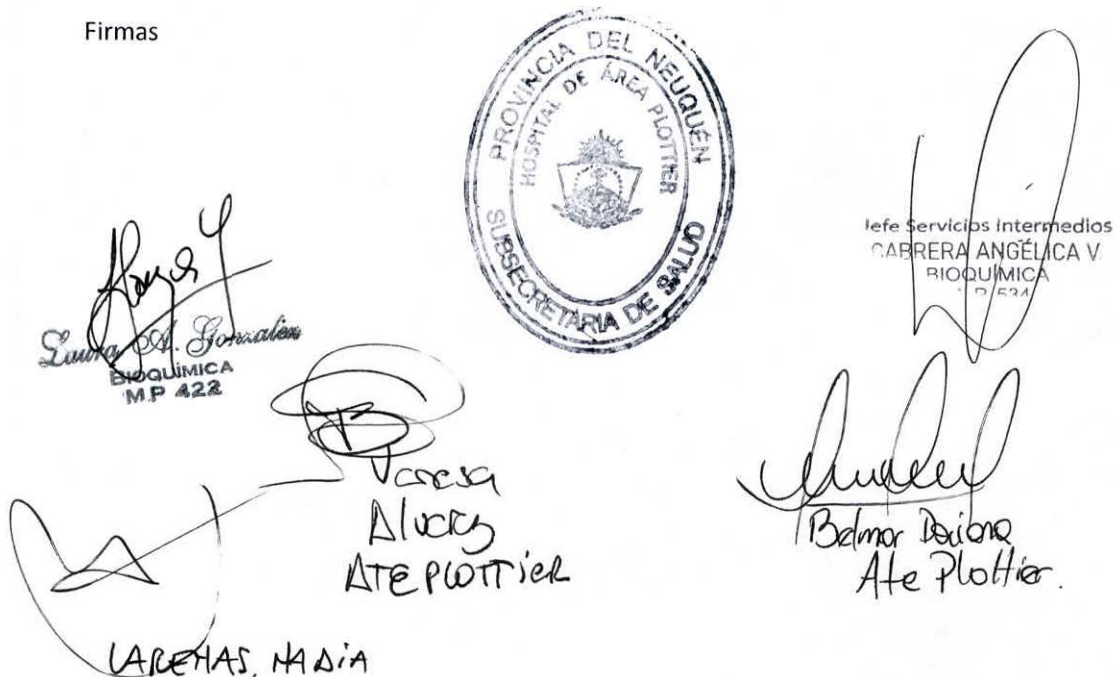 Firmas
PROVINCIA DEL NEUQUÉN
HOSPITAL DE ÁREA PLOTTIER
SUBSECRETARIA DE SALUD
Jefe Servicios Intermedios
CABRERA ANGÉLICA V.
BIOQUÍMICA
534
Laura A. Gonzalez
BIOQUÍMICA
M.P 422
Alvarez
ATE PLOTTIER
Belmar Daiana
Ate Plottier.
NADIA